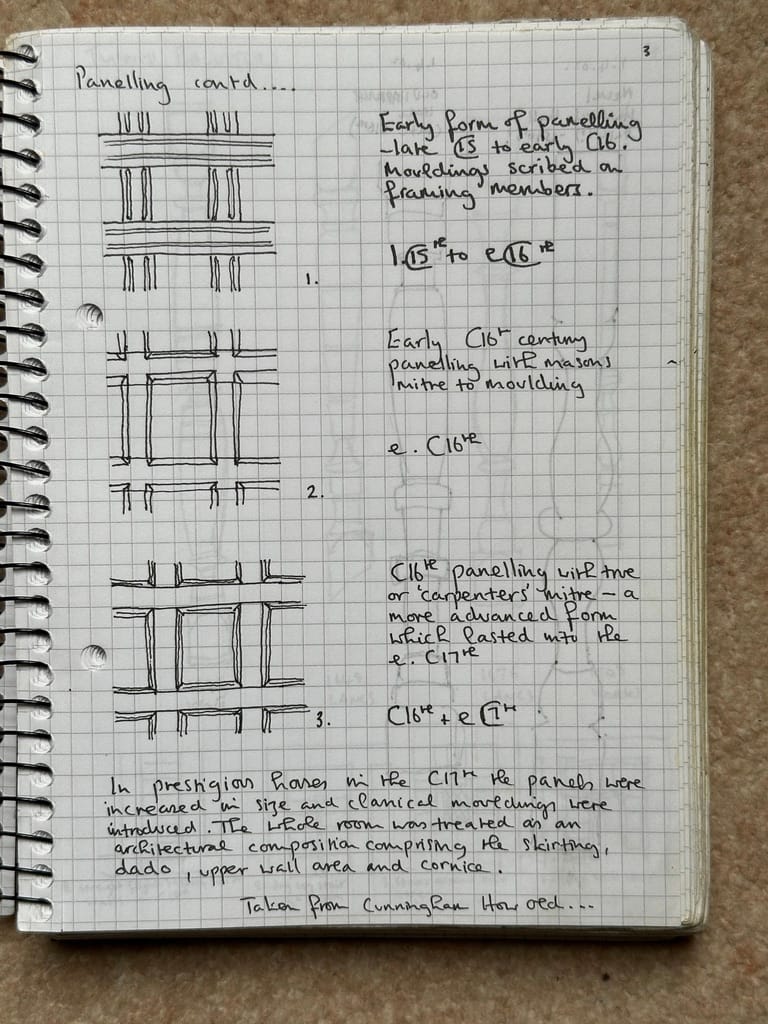 3
Panelling contd....
Early form of panelling
-late C15 to early C16.
Mouldings scribed on
framing members.
l.C15th to eC16th
1.
Early C16th century
panelling with masons
mitre to moulding
e. C16th
2.
C16th panelling with true
or 'carpenters' mitre - a
more advanced form
which lasted into the
e. C17th
C16th + e C17th
3.
In prestigious houses in the C17th the panels were
increased in size and classical mouldings were
introduced. The whole room was treated as an
architectural composition comprising the skirting,
dado, upper wall area and cornice.
Taken from Cunningham How old...